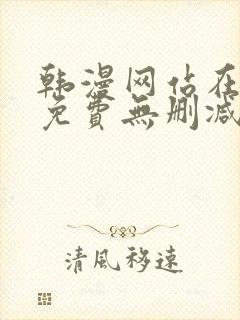 韩漫网站在
免費無刪减
清風移速